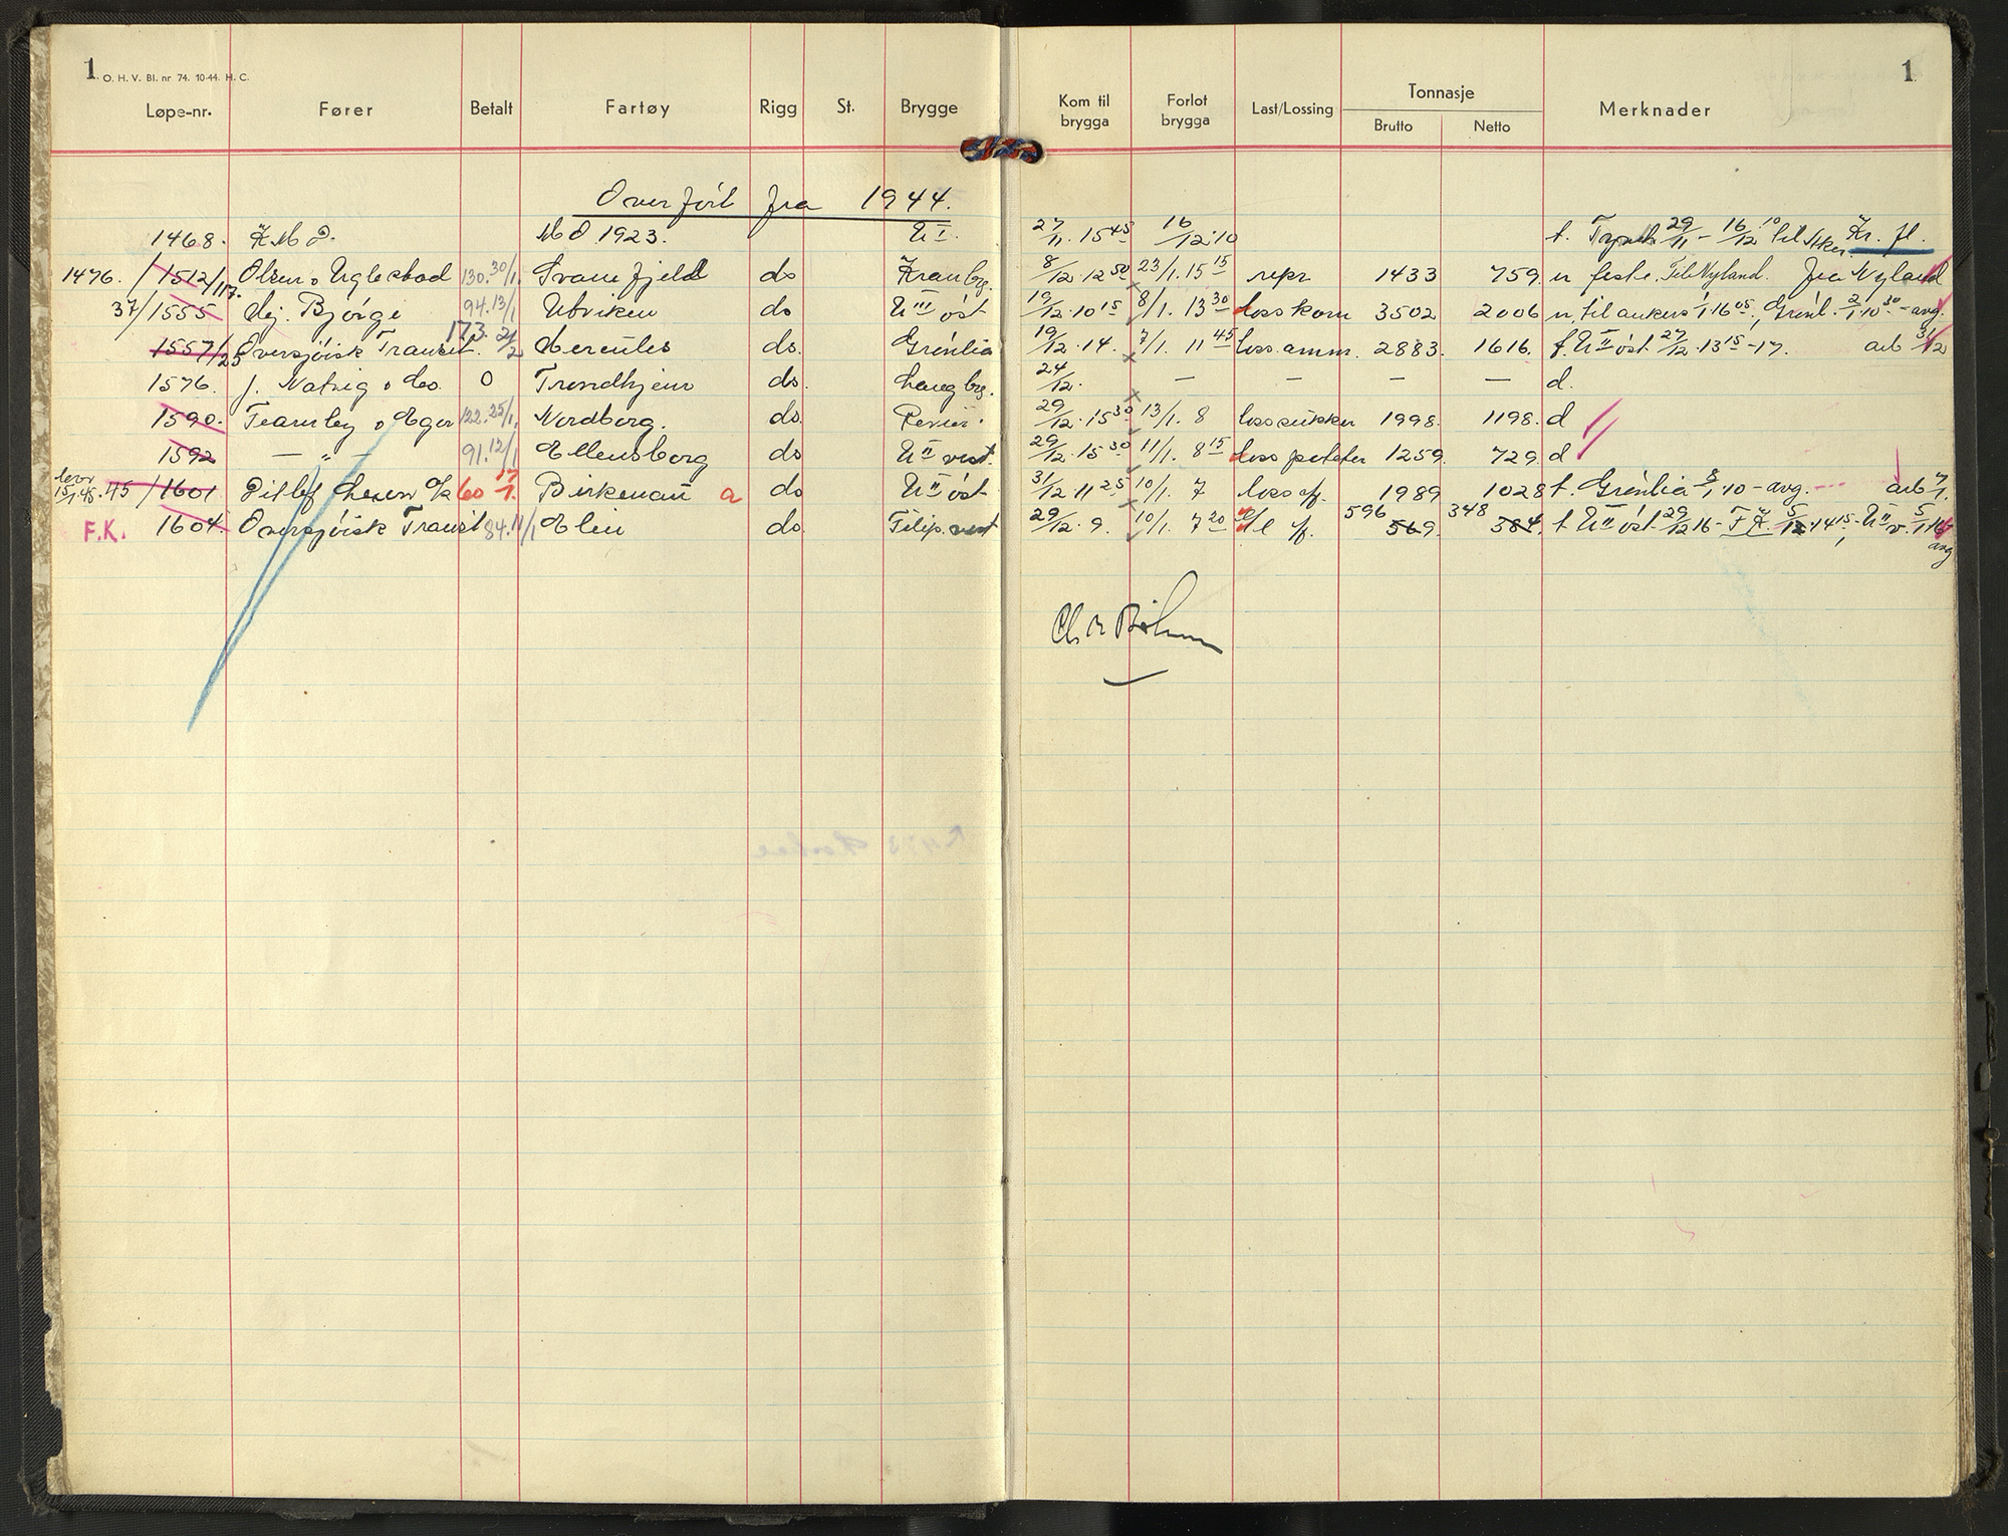 1 O. H. V. Bl. nr 74. 10-44. H. C.
1
Løpe-nr. Fører Betalt Fartøy Rigg St. Brygge Kom til brygga Forlot brygga Last/Lossing Tonnasje Brutto Netto Merknader
Overført fra 1944.
1468. K M D. M D 1923. U I. 27/11. 15 45 16/12. 10 t. 29/11 - 16/12 10 til Kr. fl.
1476. / 1512/117. Olsen o Uglestad 130. 30/1. Svanefjeld ds Kranbg. 8/12. 12 50 23/1. 15 15 repr 1433 759. n feste. Til Nyland. fra Nyland
37/1555 Hj. Bjørge 94. 13/1 Ulviken ds U III øst 19/12. 10 15 8/1. 13 30 loss korn 3502 2006 n, til ankers 1/1. 16 05, Grønl. 2/1. 10 30 - avg.
1557/23 Oversjøisk Transit. 173. 21/2 Hercules ds. Grønlia 19/12. 14. 7/1. 11 45 loss. amm. 2883. 1616. f. U II øst 27/12. 13 15 - 17. arb 31/12
1576. J. Natvig o Co. 0 Trondhjem ds. Langbg. 24/12. — — — — d.
1590. Fearnley o Eger 122. 25/1. Nordberg. ds. Revier. 29/12. 15 30 13/1. 8 loss sukker 1998. 1198. d
1592 — " — 91. 12/1 Ellensborg ds U II vest. 29/12. 15 30 11/1. 8 15 loss poteter 1259. 729. d
15/1.45. 45 /1601 Ditlef Lexow 60 17/1. Birkenau a ds U II øst 31/12. 11 25 10/1. 7 loss 1989 1028 t. Grønlia 8/1. 10 - avg. arb 7/1.
F.K. 1604. Oversjøisk Transit 84. 11/1 Elin ds Filip. vest 29/12. 9. 10/1. 7 20 596 569. 348 384. t U II øst 29/12 16 - F K. 5/12. 14 15 - U II v. 5/1 16 avg